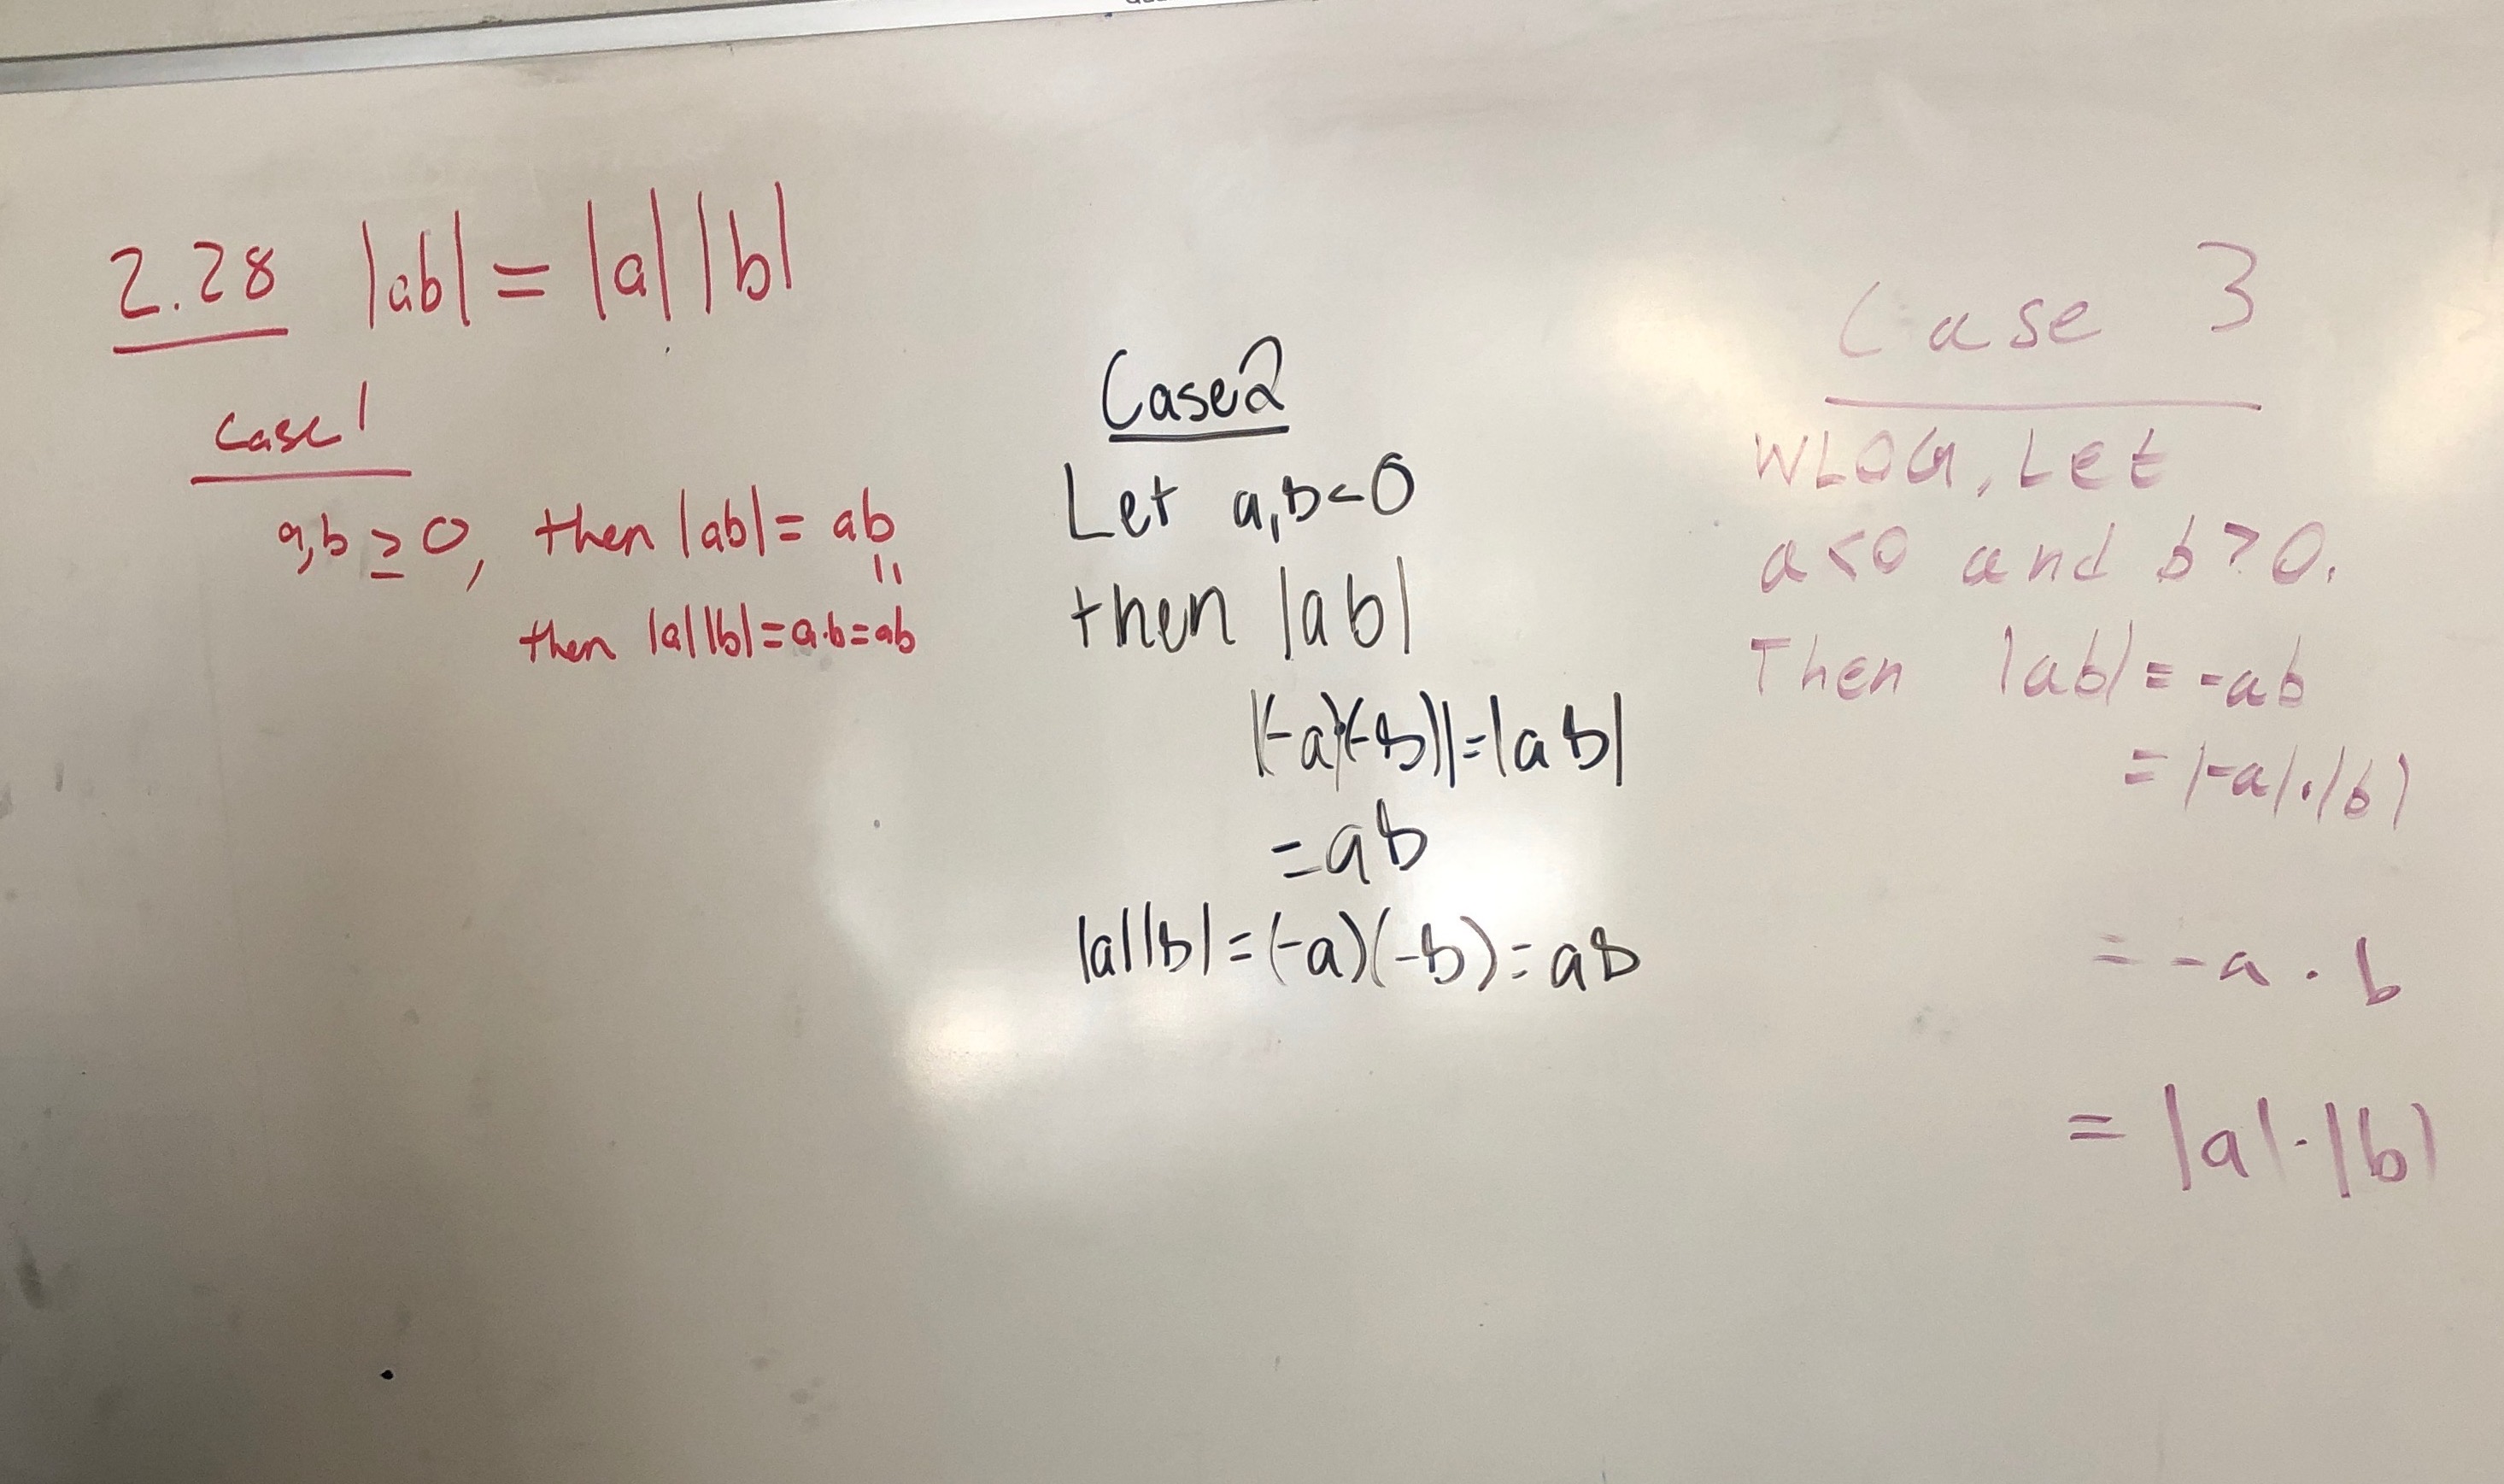 2.28 |ab| = |a| |b|
Case 1
a,b ≥ 0, then |ab| = ab
||
then |a||b| = a·b = ab
Case 2
Let a,b<0
then |ab|
|(-a)(-b)| = |ab|
= ab
|a||b| = (-a)(-b) = ab
Case 3
WLOG, Let
a<0 and b>0.
Then |ab| = -ab
= |-a|·|b|
= -a · b
= |a|·|b|